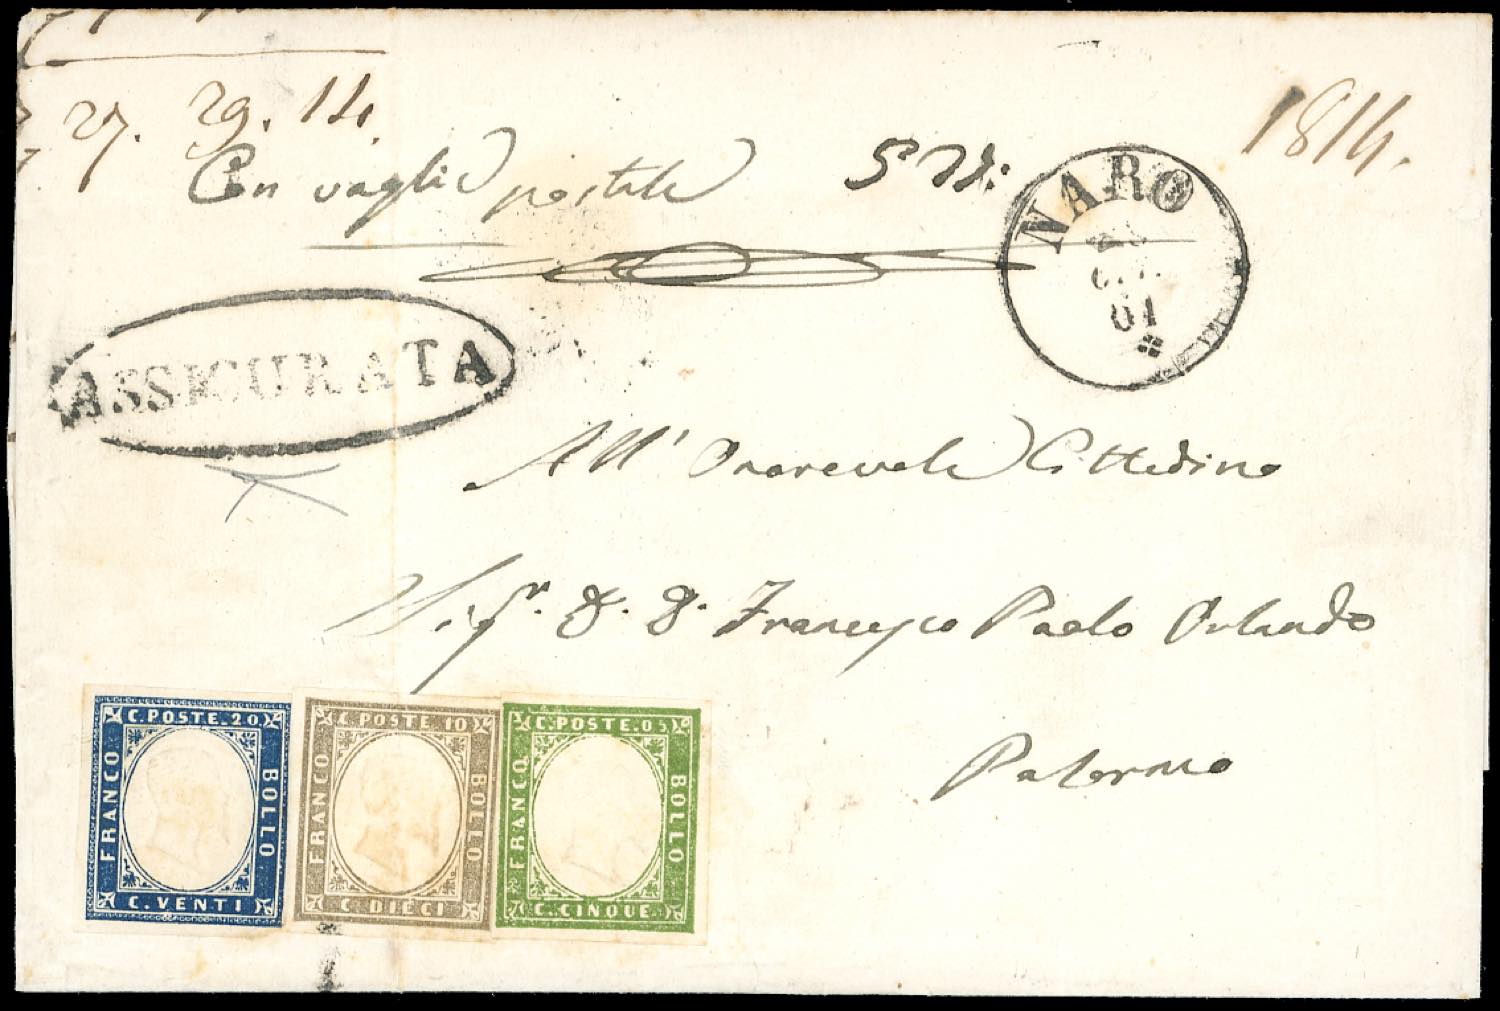 27. 29. 14.
1814.
Con vaglia postale
NARO
61
ASSICURATA
All' Onorevole Cittadino
Sigr. D. D. Francesco Paolo Orlando
Palermo
C. POSTE. 20
FRANCO
BOLLO
C. VENTI
C. POSTE 10
FRANCO
BOLLO
C. DIECI
C. POSTE. 05
FRANCO
BOLLO
C. CINQUE